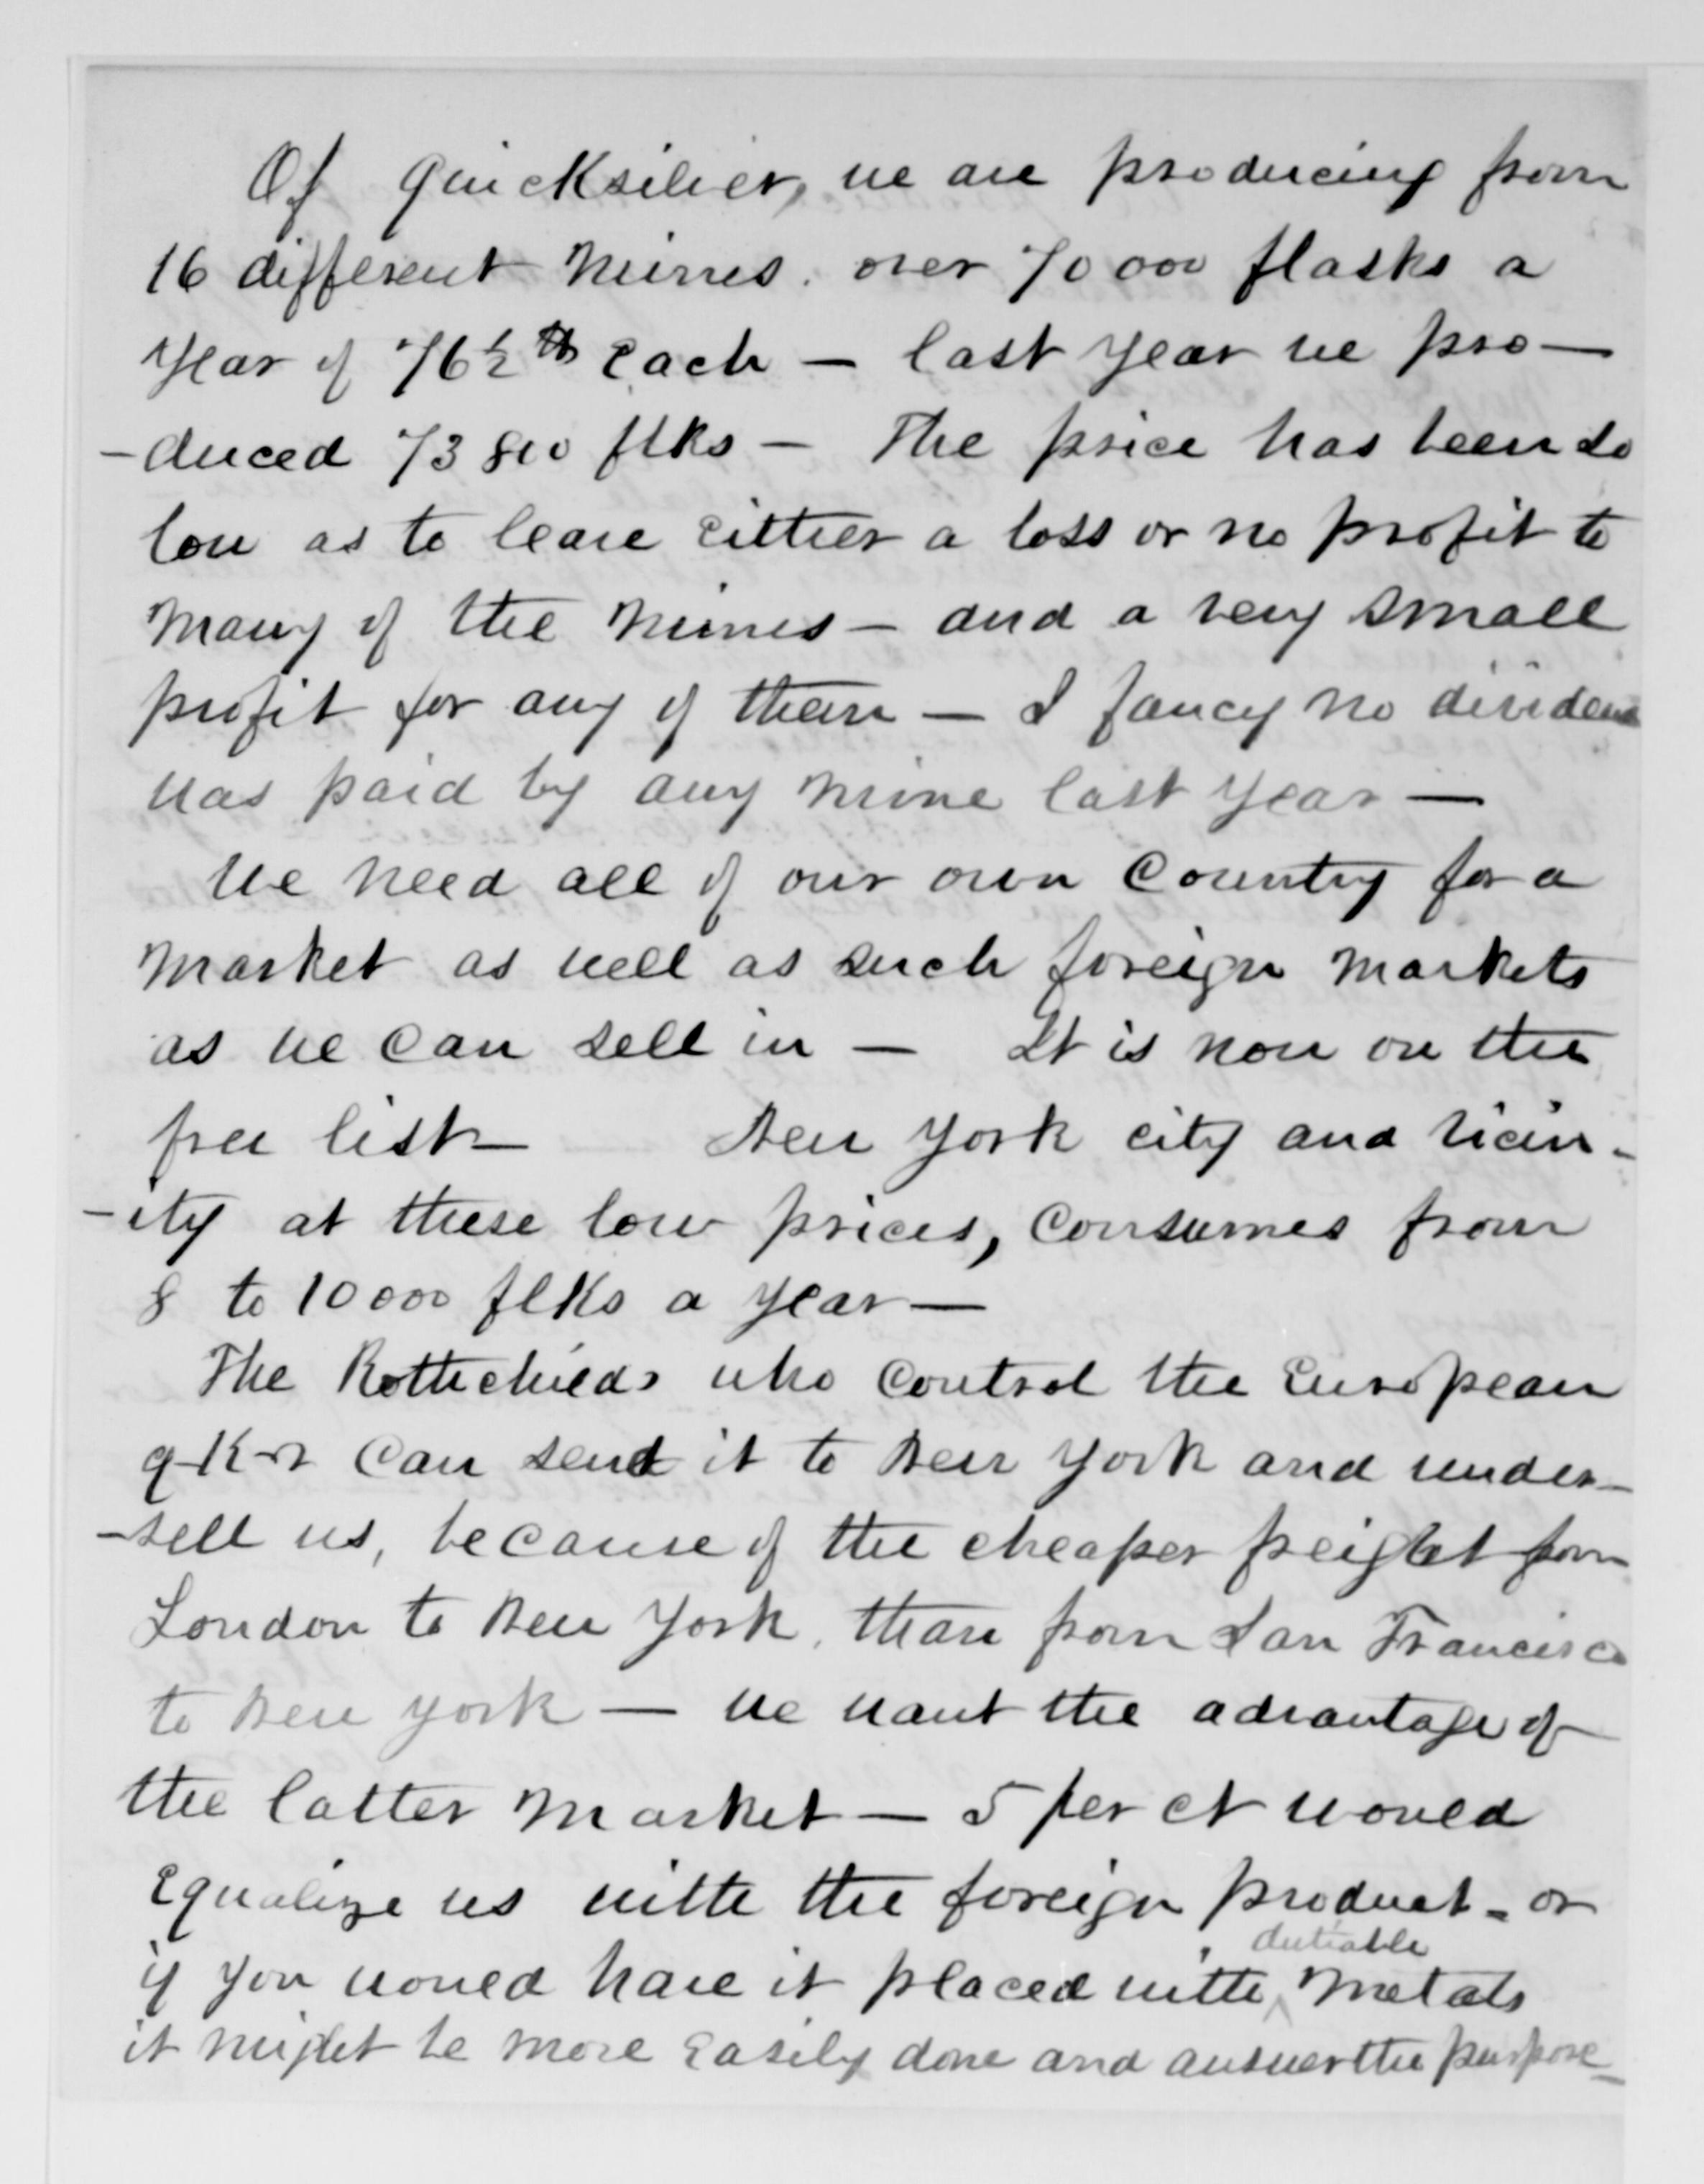 Of Quicksilver, we are producing from
16 different mines. over 70 000 flasks a
year of 76½ lbs each — last year we pro—
-duced 73 800 flks — The price has been so
low as to leave either a loss or no profit to
many of the mines — and a very small
profit for any of them — I fancy no dividend
was paid by any mine last year —
We need all of our own Country for a
market as well as such foreign markets
as we can sell in — It is now on the
free list — New York city and vicin-
-ity at these low prices, consumes from
8 to 10 000 flks a year —
The Rothchilds who control the European
q-k-r can send it to New York and under-
-sell us, because of the cheaper freight from
London to New York, than from San Francisco
to New York — we want the advantage of
the latter market — 5 per ct would
Equalize us with the foreign product - or
dutiable
if you would have it placed with ^ metals
it might be more easily done and answer the purpose